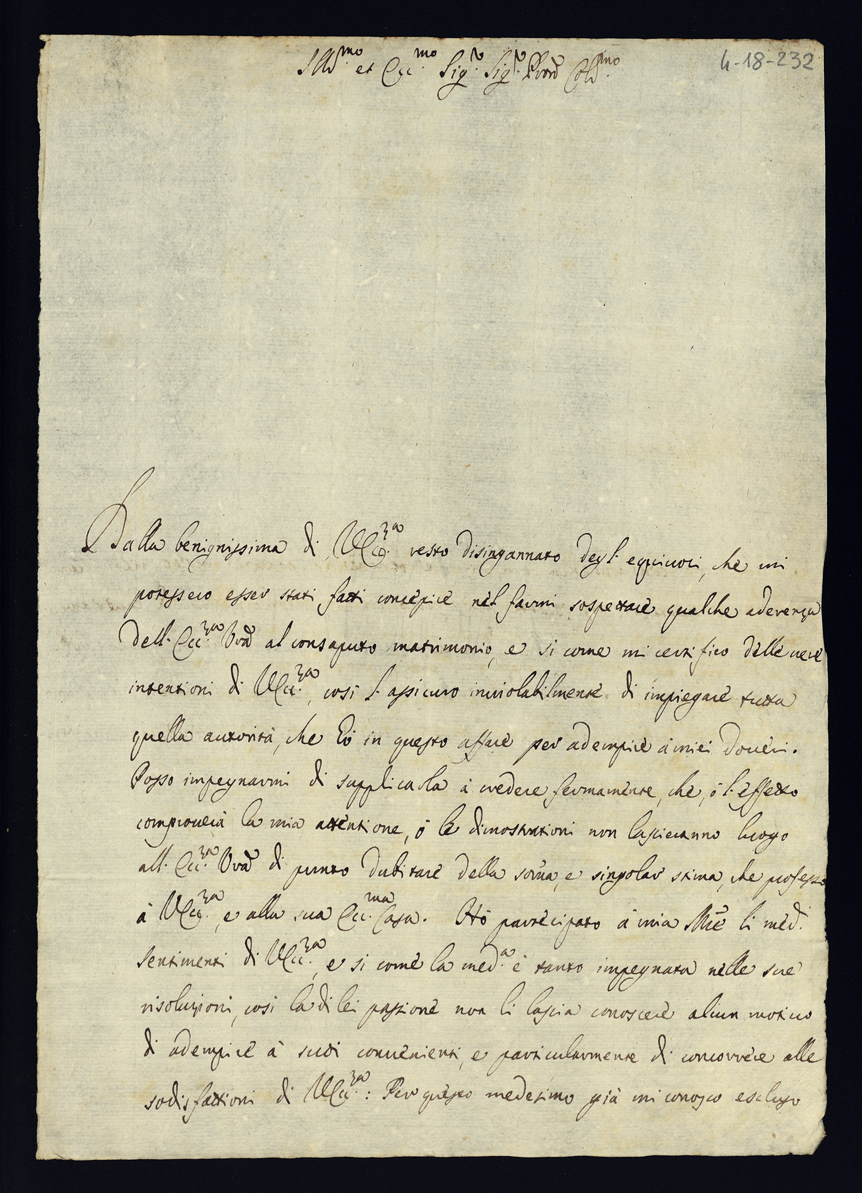 4-18-232
Ill.mo et Ecc.mo Sig.r Sig.r Pron Col.mo
Dalla benignissima di V.Ecc.za resto disingannato degl'equivoci, che mi
potessero esser stati fatti concepire nel farmi sospettare qualche aderenza
dell'Ecc.za Vra al consaputo matrimonio, e si come mi certifico delle vere
intentioni di V.Ecc.za, così l'assicuro inviolabilmente di impiegare tutta
quella autorità, che hò in questo affare per adempire à miei doveri.
Posso impegnarmi di supplicarla à credere fermamente, che, ò l'effetto
comproverà la mia attentione, ò le dimostrationi non lascieranno luogo
all'Ecc.za Vra di punto dubitare della soma, e singolar stima, che professo
à V.Ecc.za, e alla sua Ecc.ma Casa. Hò partecipato à mia Mre li med.
sentimenti di V.Ecc.za, e si come la med.a è tanto impegnata nelle sue
risoluzioni, così la di lei passione non li lascia conoscere alcun motivo
di adempire à suoi convenienti, e particularmente di concorrere alle
sodisfattioni di V.Ecc.za: Per questo medesimo già mi conosco escluso